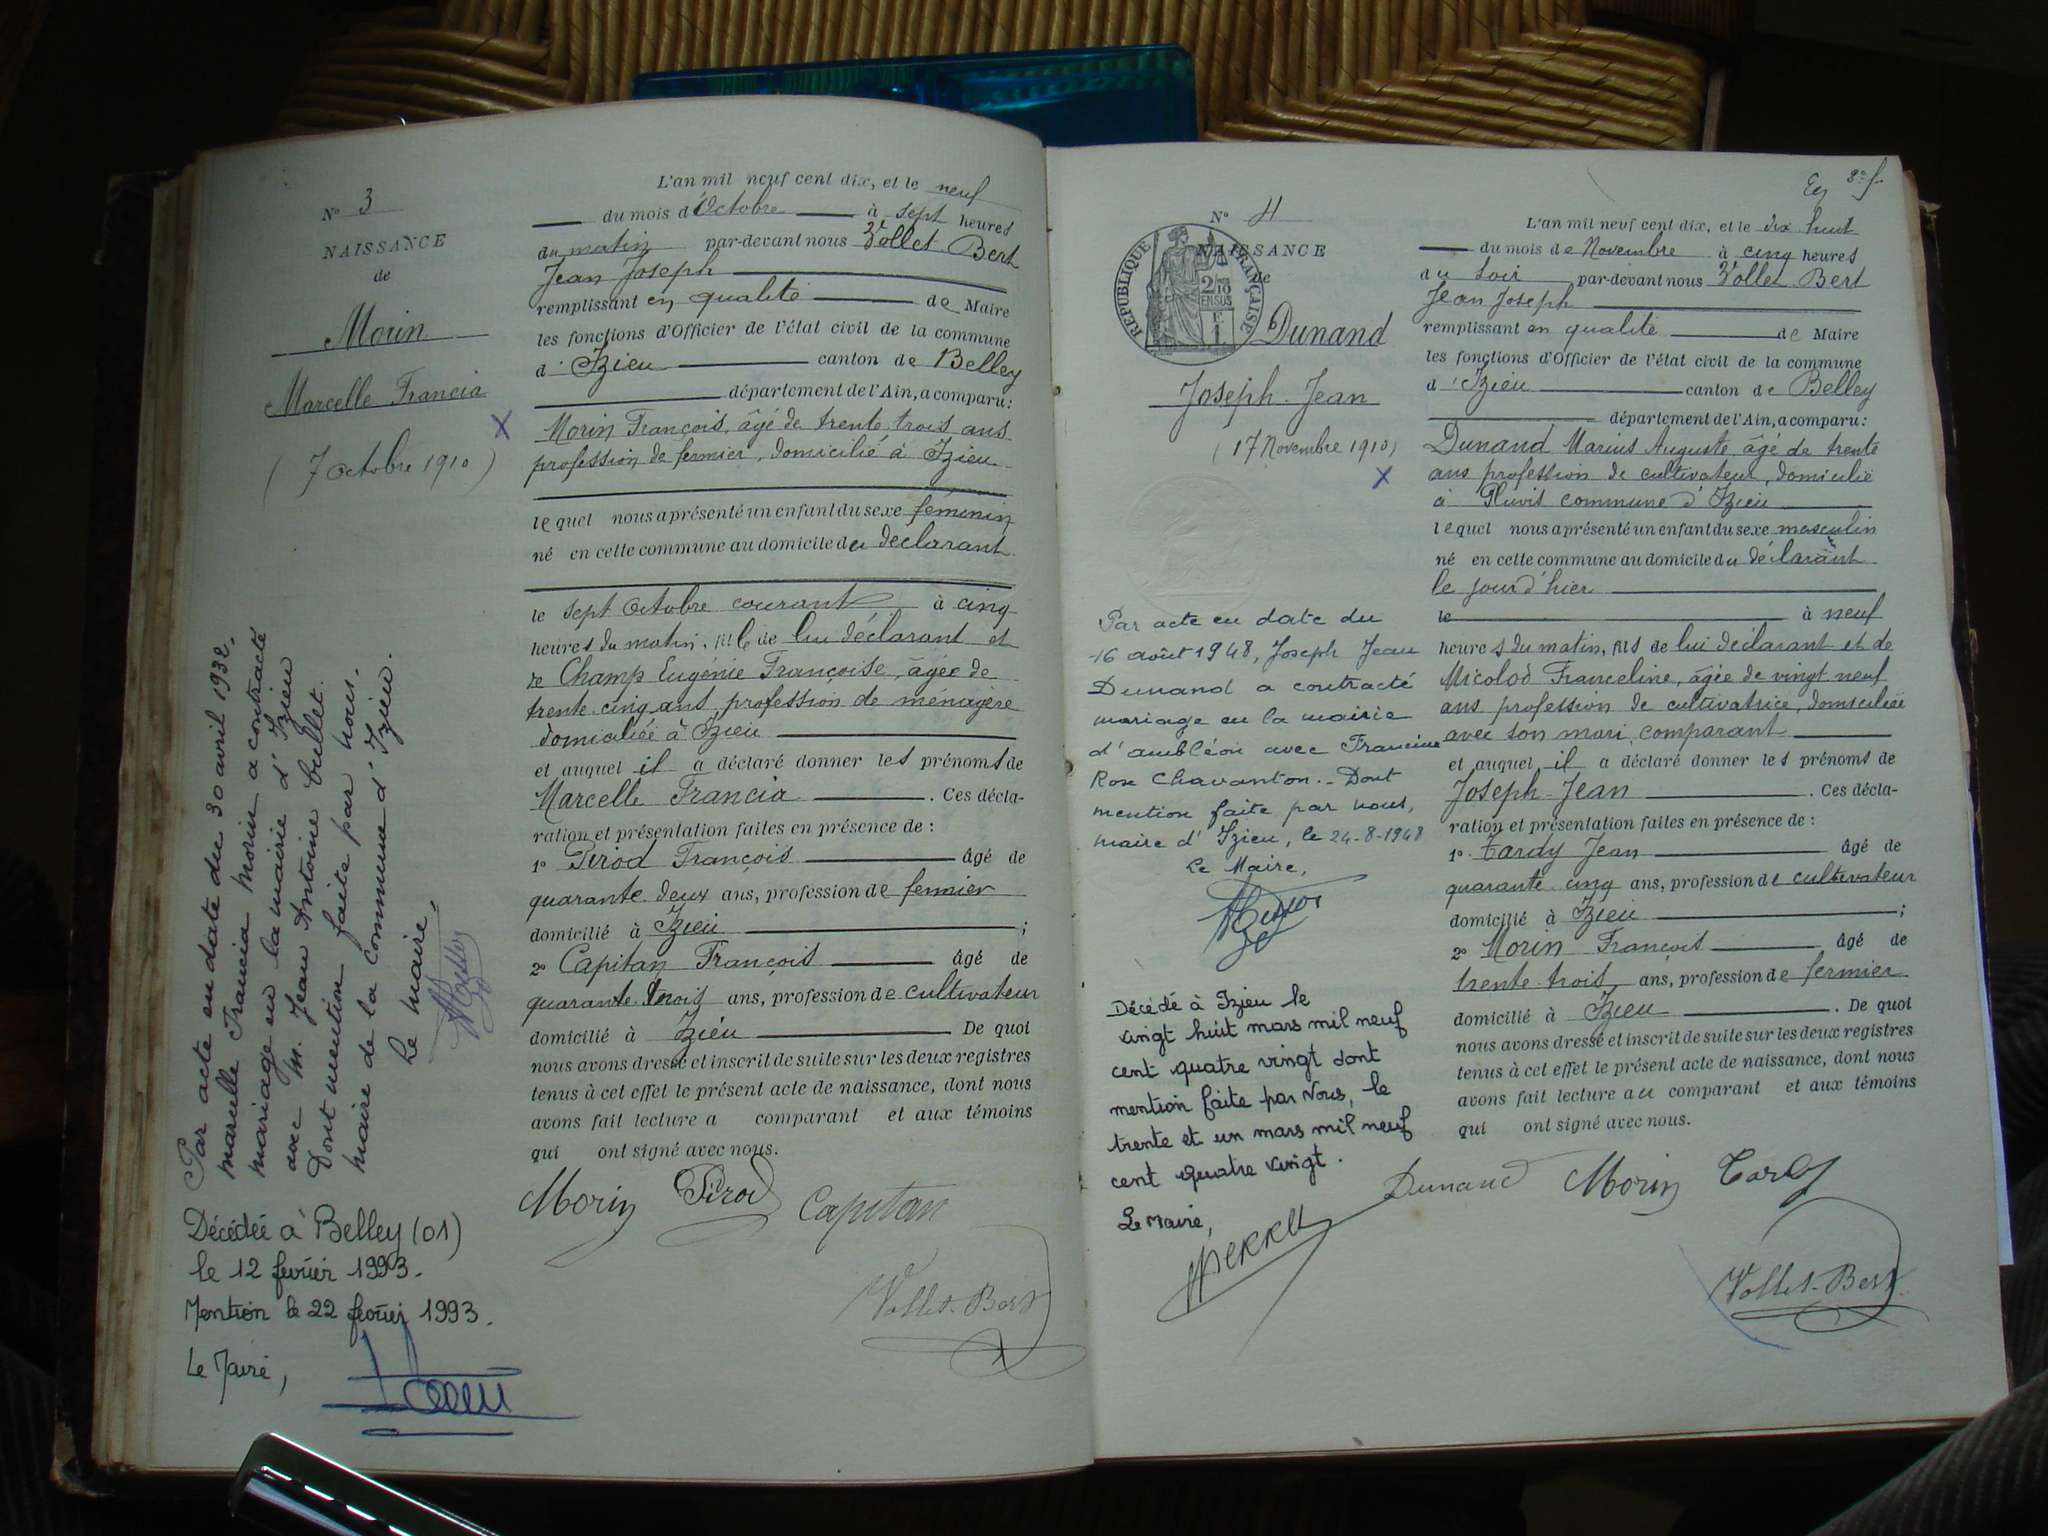 N° 3
NAISSANCE
de
Morin
Marcelle Francia
( 7 Octobre 1910 )
Par acte en date du 30 avril 1932,
marcelle Francia morin a contracté
mariage en la mairie d'Izieu
avec M. Jean Antoine bullet.
Dont mention faite par nous,
maire de la commune d'Izieu.
Le maire,
Décédée à Belley (01)
le 12 février 1993.
Mention le 22 février 1993.
Le Maire,
L'an mil neuf cent dix, et le neuf
du mois d'Octobre à sept heures
du matin par-devant nous Vollet Bert
Jean Joseph
remplissant en qualité de Maire
les fonctions d'Officier de l'état civil de la commune
d' Izieu canton de Belley
département de l'Ain, a comparu:
Morin François, âgé de trente trois ans
profession de fermier, domicilié à Izieu
lequel nous a présenté un enfant du sexe féminin
né en cette commune au domicile du déclarant
le sept Octobre courant à cinq
heures du matin, fille de lui déclarant et
de Champ Eugénie Françoise, âgée de
trente cinq ans, profession de ménagère
domiciliée à Izieu
et auquel il a déclaré donner les prénoms de
Marcelle Francia . Ces décla-
ration et présentation faites en présence de :
1° Pirod François âgé de
quarante deux ans, profession de fermier
domicilié à Izieu ;
2° Capitan François âgé de
quarante trois ans, profession de cultivateur
domicilié à Izieu De quoi
nous avons dressé et inscrit de suite sur les deux registres
tenus à cet effet le présent acte de naissance, dont nous
avons fait lecture a comparant et aux témoins
qui ont signé avec nous.
Morin Pirod Capitan
Vollet-Bert
N° 4
NAISSANCE
de
REPUBLIQUE FRANÇAISE
2/10 EN SUS
Dunand
Joseph-Jean
( 17 Novembre 1910)
Par acte en date du
16 août 1948, Joseph Jean
Dunand a contracté
mariage en la mairie
d'ambléon avec Francine
Rose Chavanton. - Dont
mention faite par nous,
maire d'Izieu, le 24-8-1948
Le Maire,
Décédé à Izieu le
vingt huit mars mil neuf
cent quatre vingt dont
mention faite par Nous, le
trente et un mars mil neuf
cent quatre vingt.
Le Maire,
PERRET
L'an mil neuf cent dix, et le dix huit
du mois de Novembre à cinq heures
du soir par-devant nous Vollet Bert
Jean Joseph
remplissant en qualité de Maire
les fonctions d'Officier de l'état civil de la commune
d'Izieu canton de Belley
département de l'Ain, a comparu:
Dunand Marius Auguste âgé de trente
ans profession de cultivateur, domicilié
à Pluvis commune d'Izieu
lequel nous a présenté un enfant du sexe masculin
né en cette commune au domicile du déclarant
le jour d'hier
le à neuf
heures du matin, fils de lui déclarant et de
Micolod Franceline, âgée de vingt neuf
ans profession de cultivatrice, domiciliée
avec son mari comparant
et auquel il a déclaré donner les prénoms de
Joseph-Jean . Ces décla-
ration et présentation faites en présence de :
1° Tardy Jean âgé de
quarante cinq ans, profession de cultivateur
domicilié à Izieu ;
2° Morin François âgé de
trente trois ans, profession de fermier
domicilié à Izieu . De quoi
nous avons dressé et inscrit de suite sur les deux registres
tenus à cet effet le présent acte de naissance, dont nous
avons fait lecture au comparant et aux témoins
qui ont signé avec nous.
Dunand Morin Tardy
Vollet-Bert